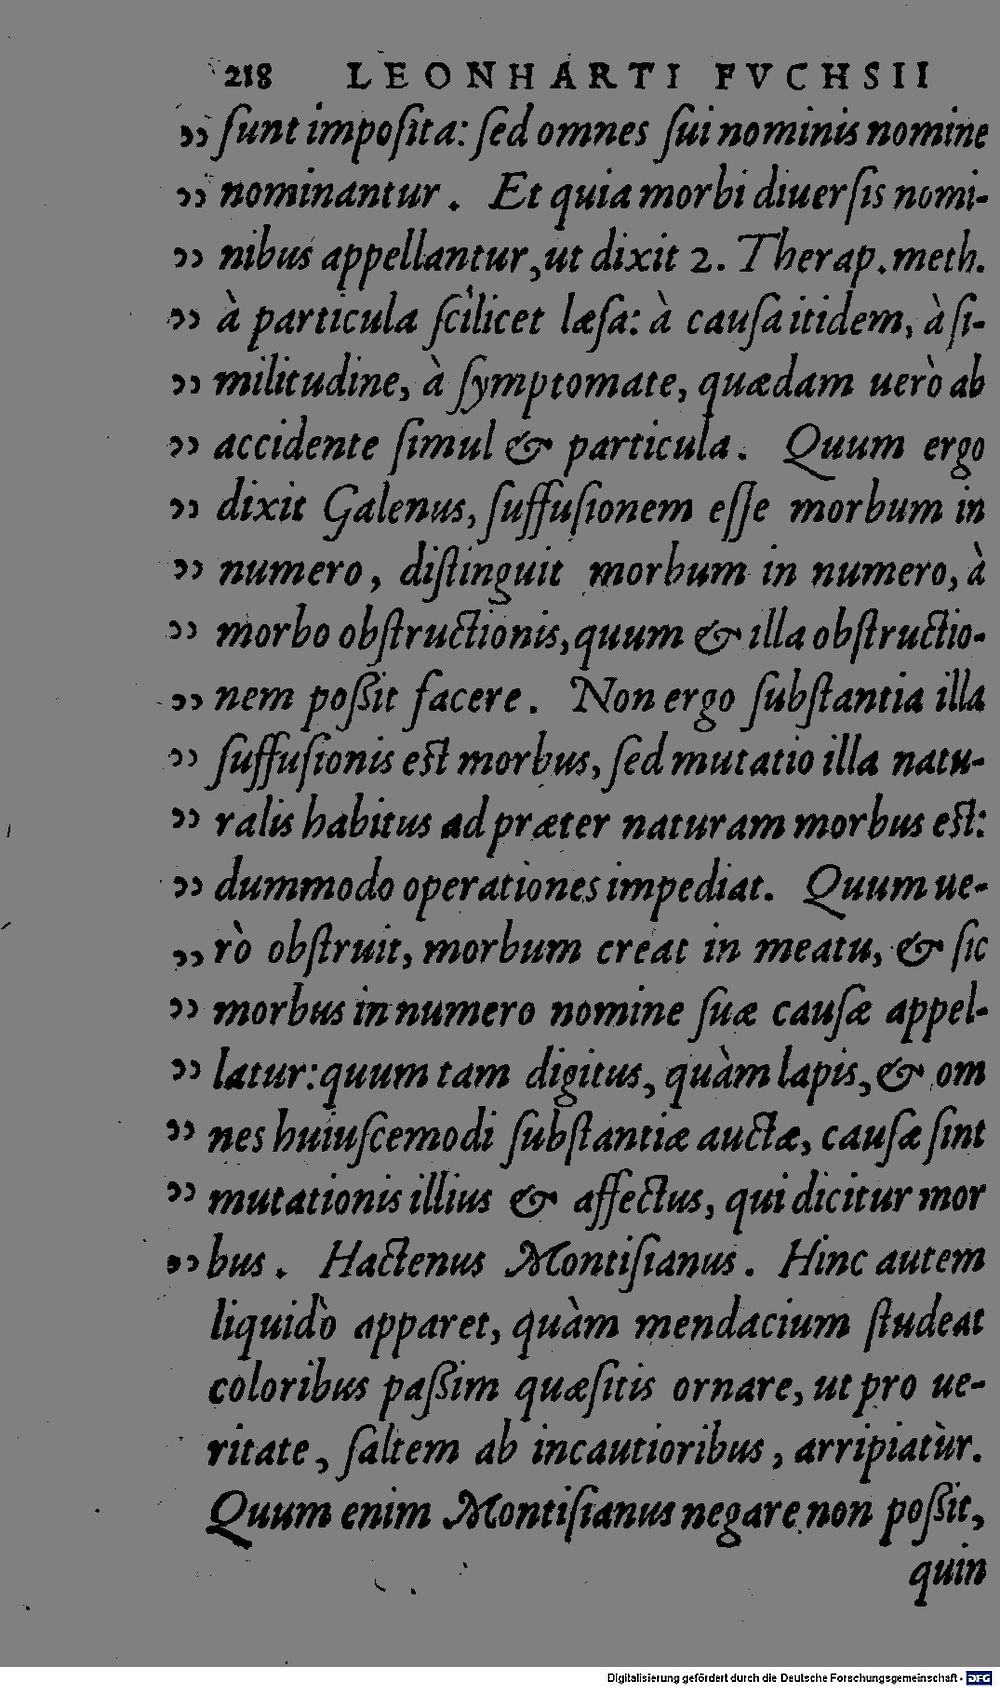 218 LEONHARTI FVCHSII
„ ſunt impoſita: ſed omnes ſui nominis nomine
„ nominantur. Et quia morbi diuerſis nomi-
„ nibus appellantur, ut dixit 2. Therap. meth.
„ à particula ſcilicet læſa: à cauſa itidem, à ſi-
„ militudine, à ſymptomate, quædam uerò ab
„ accidente ſimul & particula. Quum ergo
„ dixit Galenus, ſuffuſionem eſſe morbum in
„ numero, diſtinguit morbum in numero, à
„ morbo obſtructionis, quum & illa obſtructio-
„ nem poßit facere. Non ergo ſubſtantia illa
„ ſuffuſionis eſt morbus, ſed mutatio illa natu-
„ ralis habitus ad præter naturam morbus eſt:
„ dummodo operationes impediat. Quum ue-
„ rò obſtruit, morbum creat in meatu, & ſic
„ morbus in numero nomine ſuæ cauſæ appel-
„ latur: quum tam digitus, quàm lapis, & om
„ nes huiuſcemodi ſubſtantiæ auctæ, cauſæ ſint
„ mutationis illius & affectus, qui dicitur mor
„ bus. Hactenus Montiſianus. Hinc autem
liquidò apparet, quàm mendacium ſtudeat
coloribus paßim quæſitis ornare, ut pro ue-
ritate, ſaltem ab incautioribus, arripiatur.
Quum enim Montiſianus negare non poßit,
quin
Digitalisierung gefördert durch die Deutsche Forschungsgemeinschaft - DFG